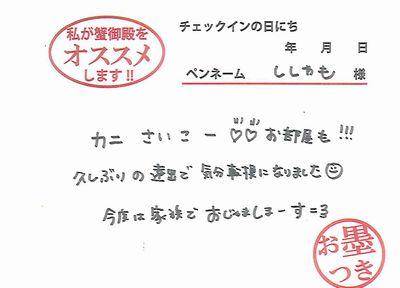 私が蟹御殿を
オススメ
します!!
チェックインの日にち
年 月 日
ペンネーム ししゃも 様
カニ さいこー♡♡お部屋も!!!
久しぶりの遠出で気分転換になりました☺
今度は家族でおじゃましまーす=3
お墨
つき